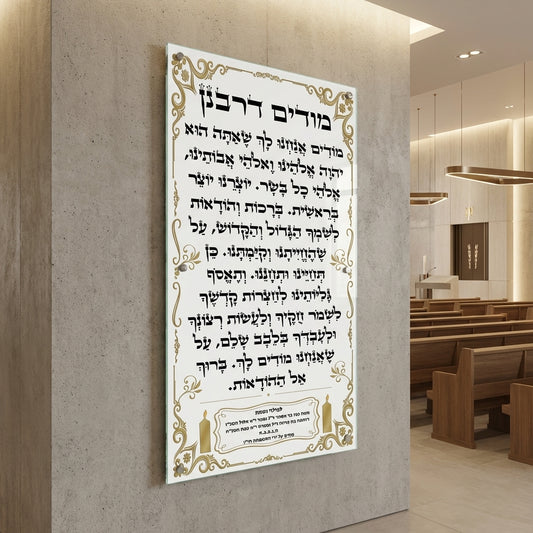 מודים דרבנן
מוֹדִים אֲנַחְנוּ לָךְ שָׁאַתָּה הוּא
יְהוָה אֱלֹהֵינוּ וֶאלֹהֵי אֲבוֹתֵינוּ,
אֱלֹהֵי כָל בָּשָׂר. יוֹצְרֵנוּ יוֹצֵר
בְּרֵאשִׁית. בְּרָכוֹת וְהוֹדָאוֹת
לְשִׁמְךָ הַגָּדוֹל וְהַקָּדוֹשׁ, עַל
שֶׁהֶחֱיִיתָנוּ וְקִיַּמְתָּנוּ. כֵּן
תְּחַיֵּינוּ וּתְחָנֵּנוּ. וְתֶאֱסֹף
גָּלִיּוֹתֵינוּ לְחַצְרוֹת קָדְשֶׁךָ
לִשְׁמֹר חֻקֶּיךָ וְלַעֲשׂוֹת רְצוֹנְךָ
וּלְעָבְדְּךָ בְּלֵבָב שָׁלֵם, עַל
שֶׁאֲנַחְנוּ מוֹדִים לָךְ. בָּרוּךְ
אֵל הַהוֹדָאוֹת.
לעילוי נשמת
ת.נ.צ.ב.ה